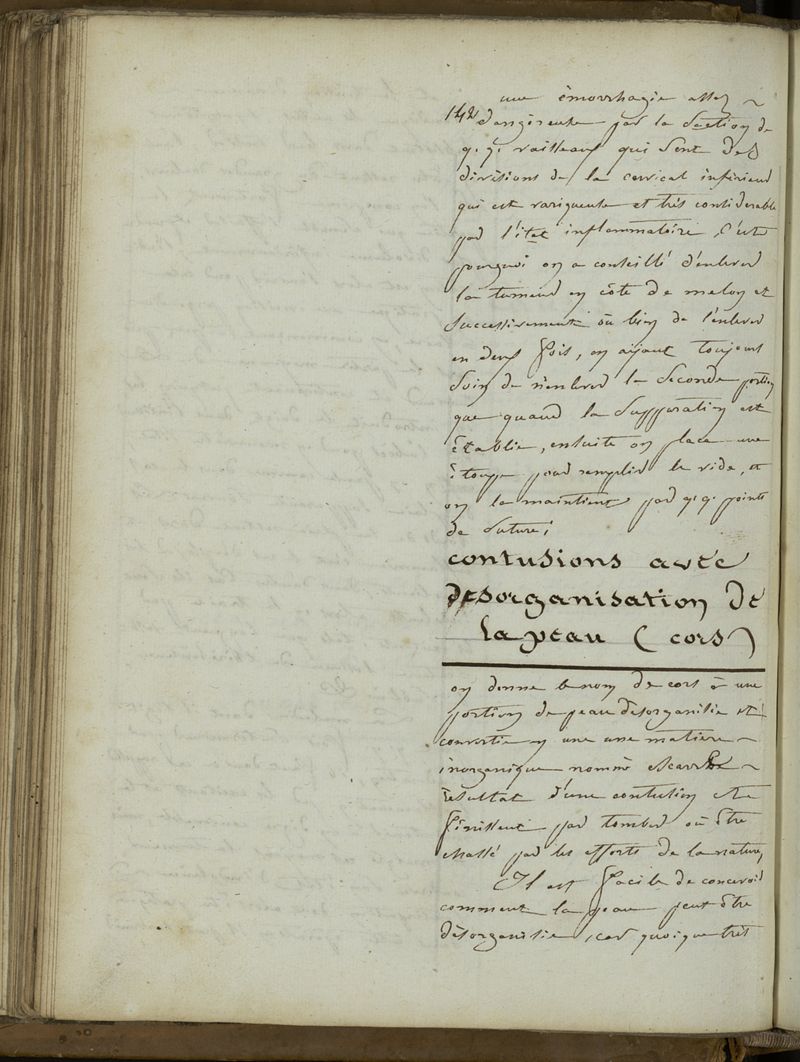 une émorrhagie assez
142 dangereuse par la section de
q. q. vaisseaux qui sont des
divisions de la cervical inferieur
qui est variqueuse et très considerable
par l'état inflammatoire, c'est
pourquoi on a conseillé d'enlever
la tumeur en côte de melon et
successivement ou bien de l'enlever
en deux fois, en ayant toujours
soin de n'enlever la seconde portion
que quand la suppuration est
établie, ensuite on place une
étoupe pour remplir le vide, et
on la maintient par q. q. points
de suture;
contusions avec
desorganisation de
la peau (cors)
on donne le nom de cors à une
portion de peau désorganisée et
convertie en une une matière
inorganique nommé escarrhe
résultat d'une contusion et
finissent par tomber ou être
chassé par les efforts de la nature,
Il est facile de concevoir
comment la peau peut être
désorganisée, car quoique très